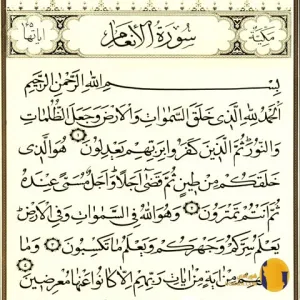 مكية سورة الأنعام آياتها ١٦٥
بسم الله الرحمن الرحيم
الحمد لله الذي خلق السموات والأرض وجعل الظلمات
والنور ثم الذين كفروا بربهم يعدلون ١ هو الذي
خلقكم من طين ثم قضى أجلا وأجل مسمى عنده
ثم أنتم تمترون ٢ وهو الله في السموات وفي الأرض
يعلم سركم وجهركم ويعلم ما تكسبون ٣ وما
من آية من آيات ربهم إلا كانوا عنها معرضين ٤